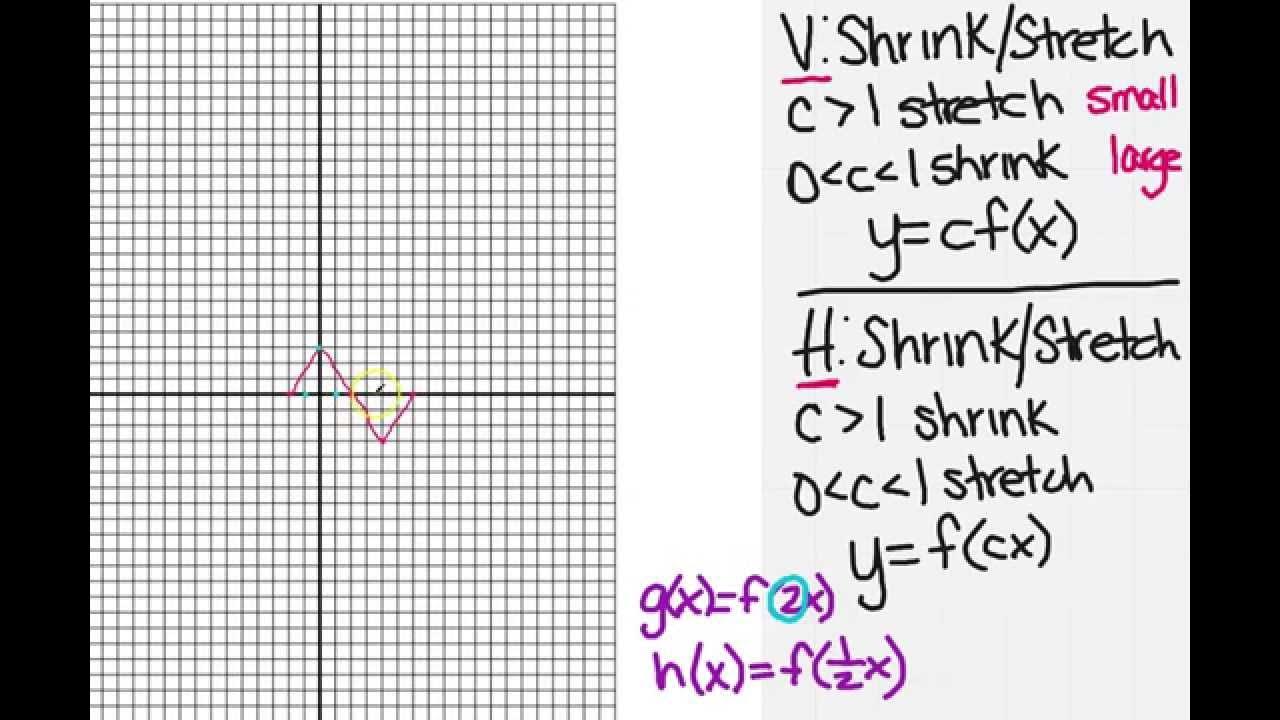 V: Shrink/Stretch
c > 1 stretch small
0 < c < 1 shrink large
y = cf(x)
H: Shrink/Stretch
c > 1 shrink
0 < c < 1 stretch
y = f(cx)
g(x) = f(2x)
h(x) = f(1/2x)